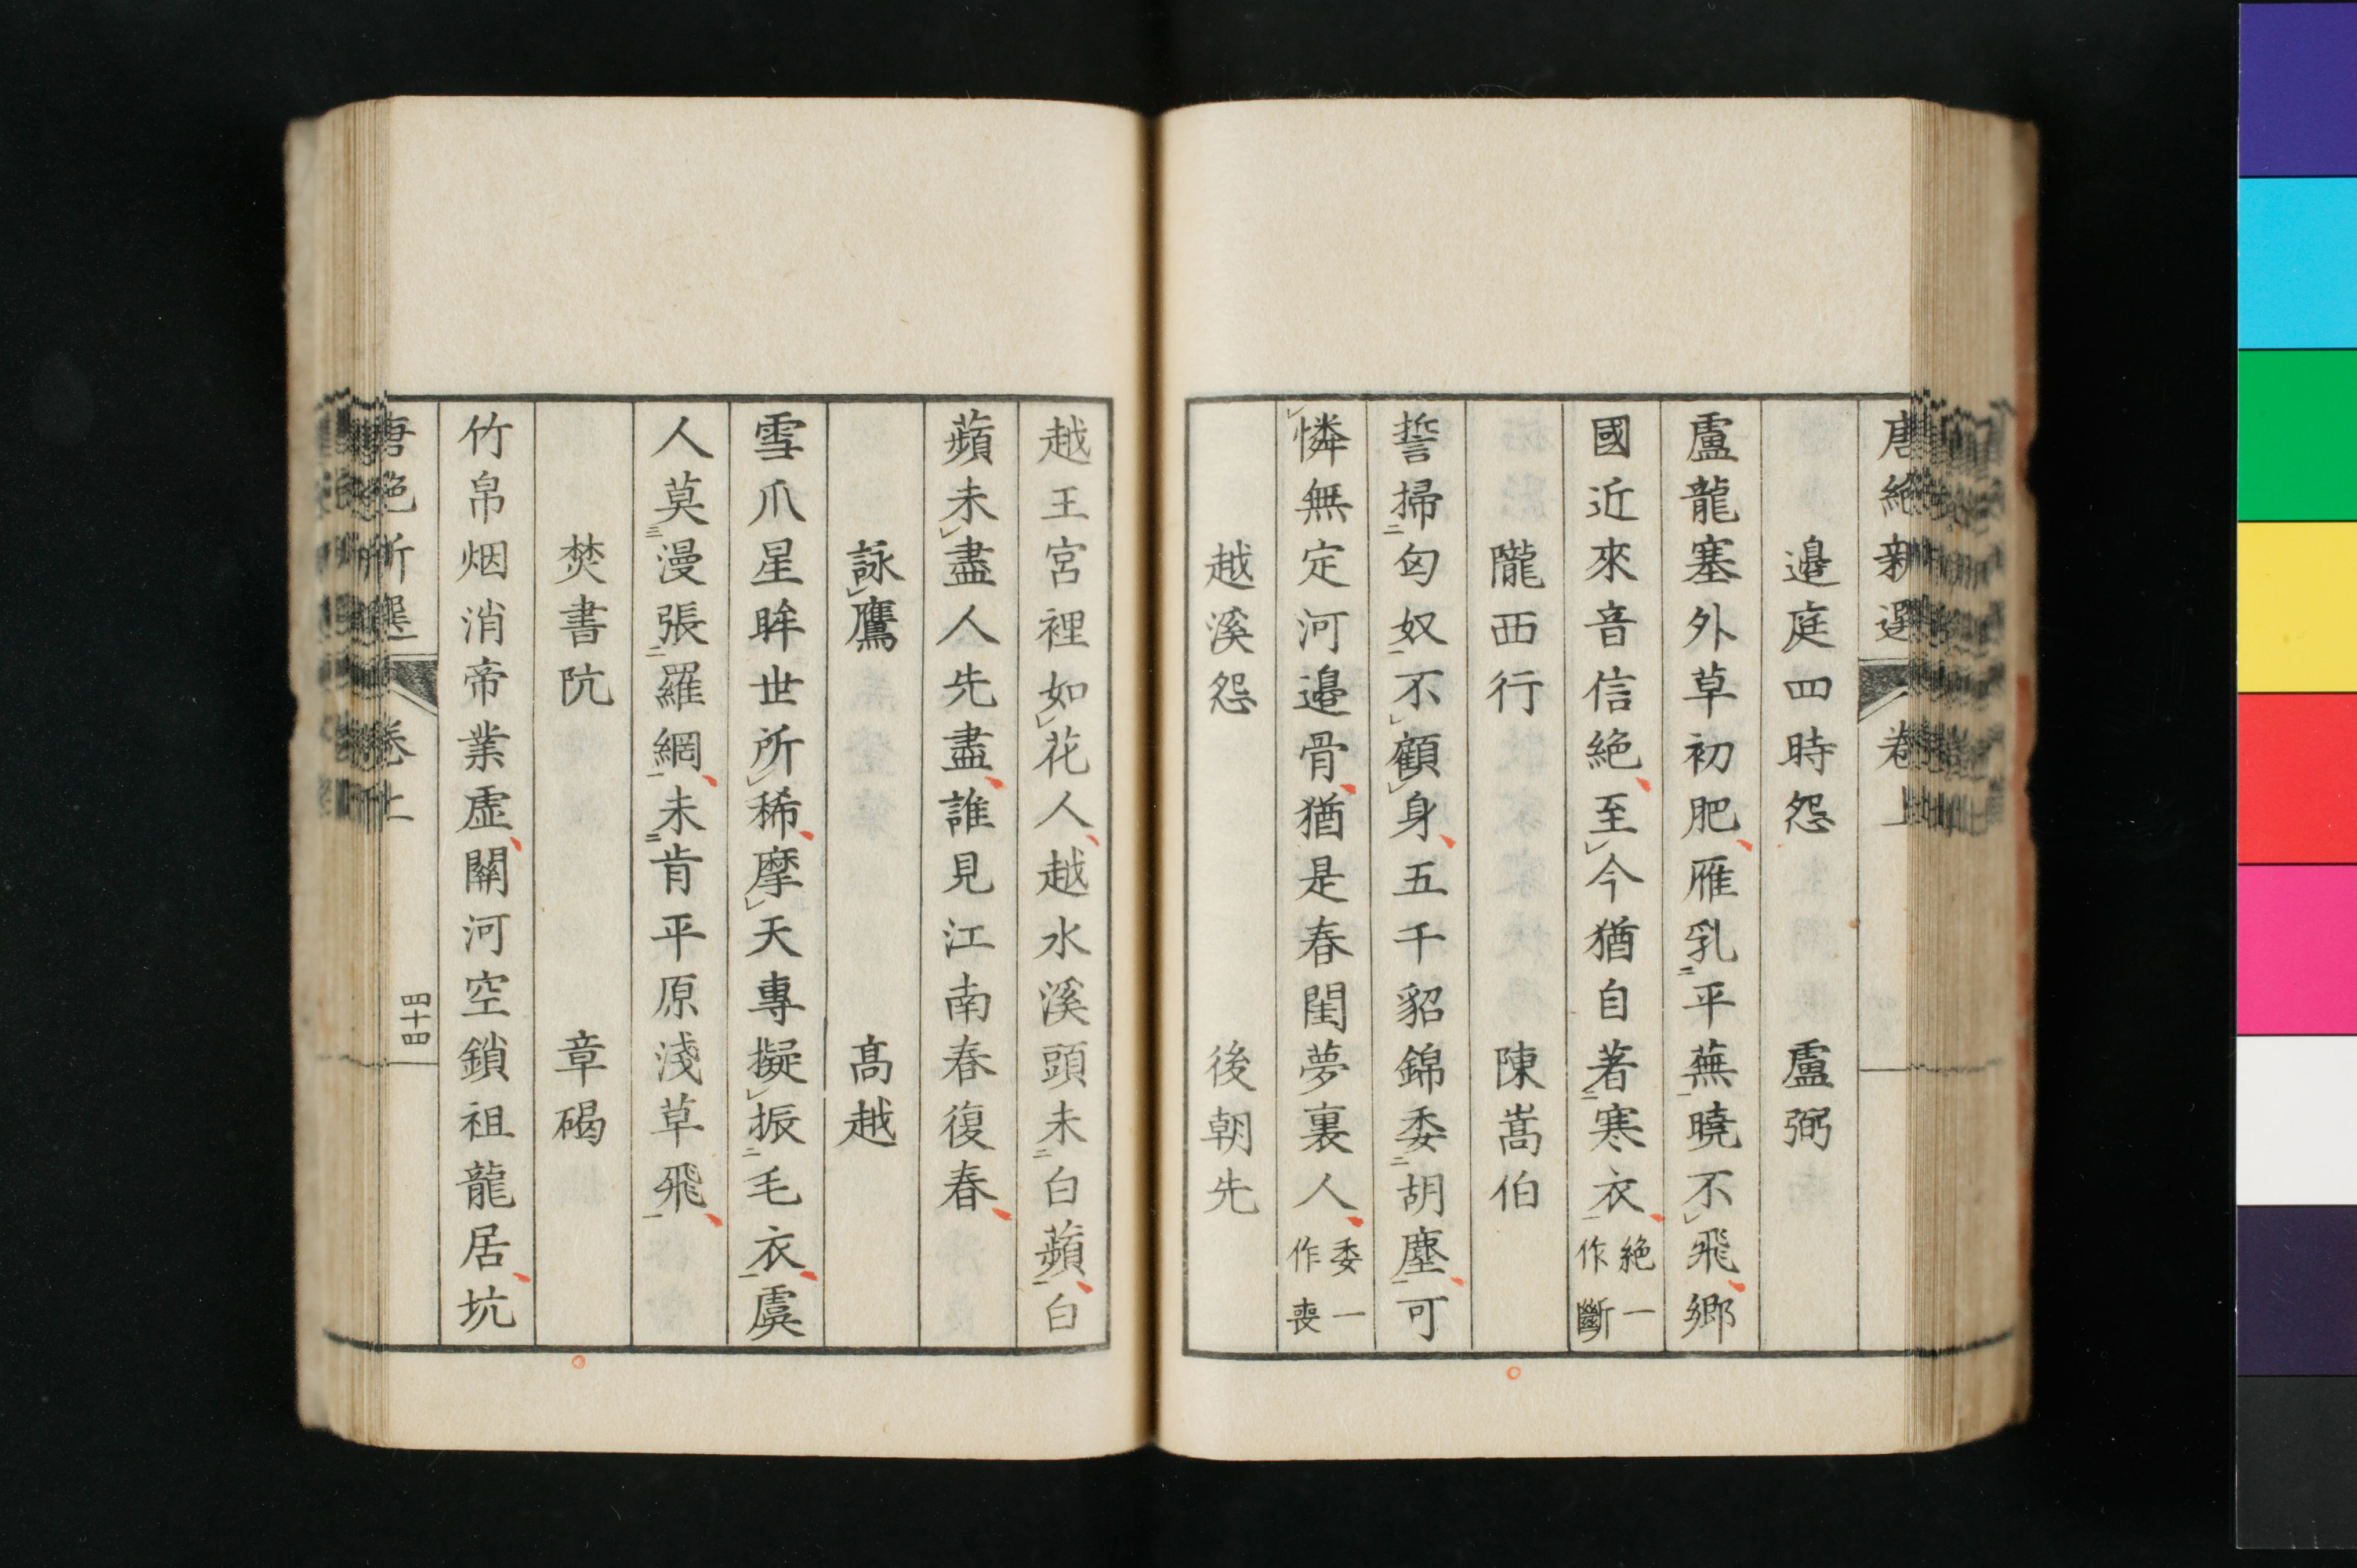 唐絶新選 卷上
邉庭四時怨 盧弼
盧龍塞外草初肥雁乳平蕪曉不飛鄉
國近來音信絶至今猶自著寒衣絶一作斷
隴西行 陳嵩伯
誓掃匈奴不顧身五千貂錦委胡塵可
憐無定河邉骨猶是春閨夢裏人委一作喪
越溪怨 後朝先
越王宮裡如花人越水溪頭未白蘋白
蘋未盡人先盡誰見江南春復春
詠鷹 髙越
雪爪星眸世所稀摩天專擬振毛衣虞
人莫漫張羅網未肯平原淺草飛
焚書阬 章碣
竹帛烟消帝業虛關河空鎖祖龍居坑
唐絶新選 卷上 四十四